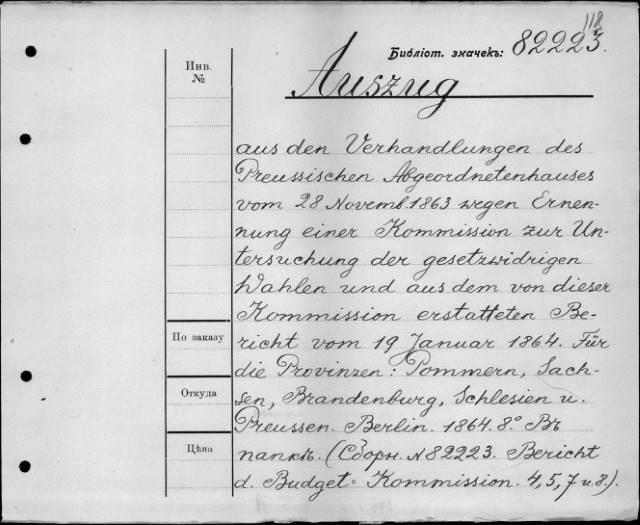 118
Библіот. значекъ: 82223.
Инв.
№
Auszug
aus den Verhandlungen des
Preussischen Abgeordnetenhauses
vom 28 Novemb. 1863 wegen Ernen-
nung einer Kommission zur Un-
tersuchung der gesetzwidrigen
Wahlen und aus dem von dieser
Kommission erstatteten Be-
richt vom 19 Januar 1864. Für
die Provinzen: Pommern, Sach-
sen, Brandenburg, Schlesien u.
Preussen. Berlin. 1864. 8.° Въ
папкѣ. (Сборн. № 82223. Bericht
d. Budget= Kommission. 4, 5, 7 u. 8.).
По заказу
Откуда
Цѣна